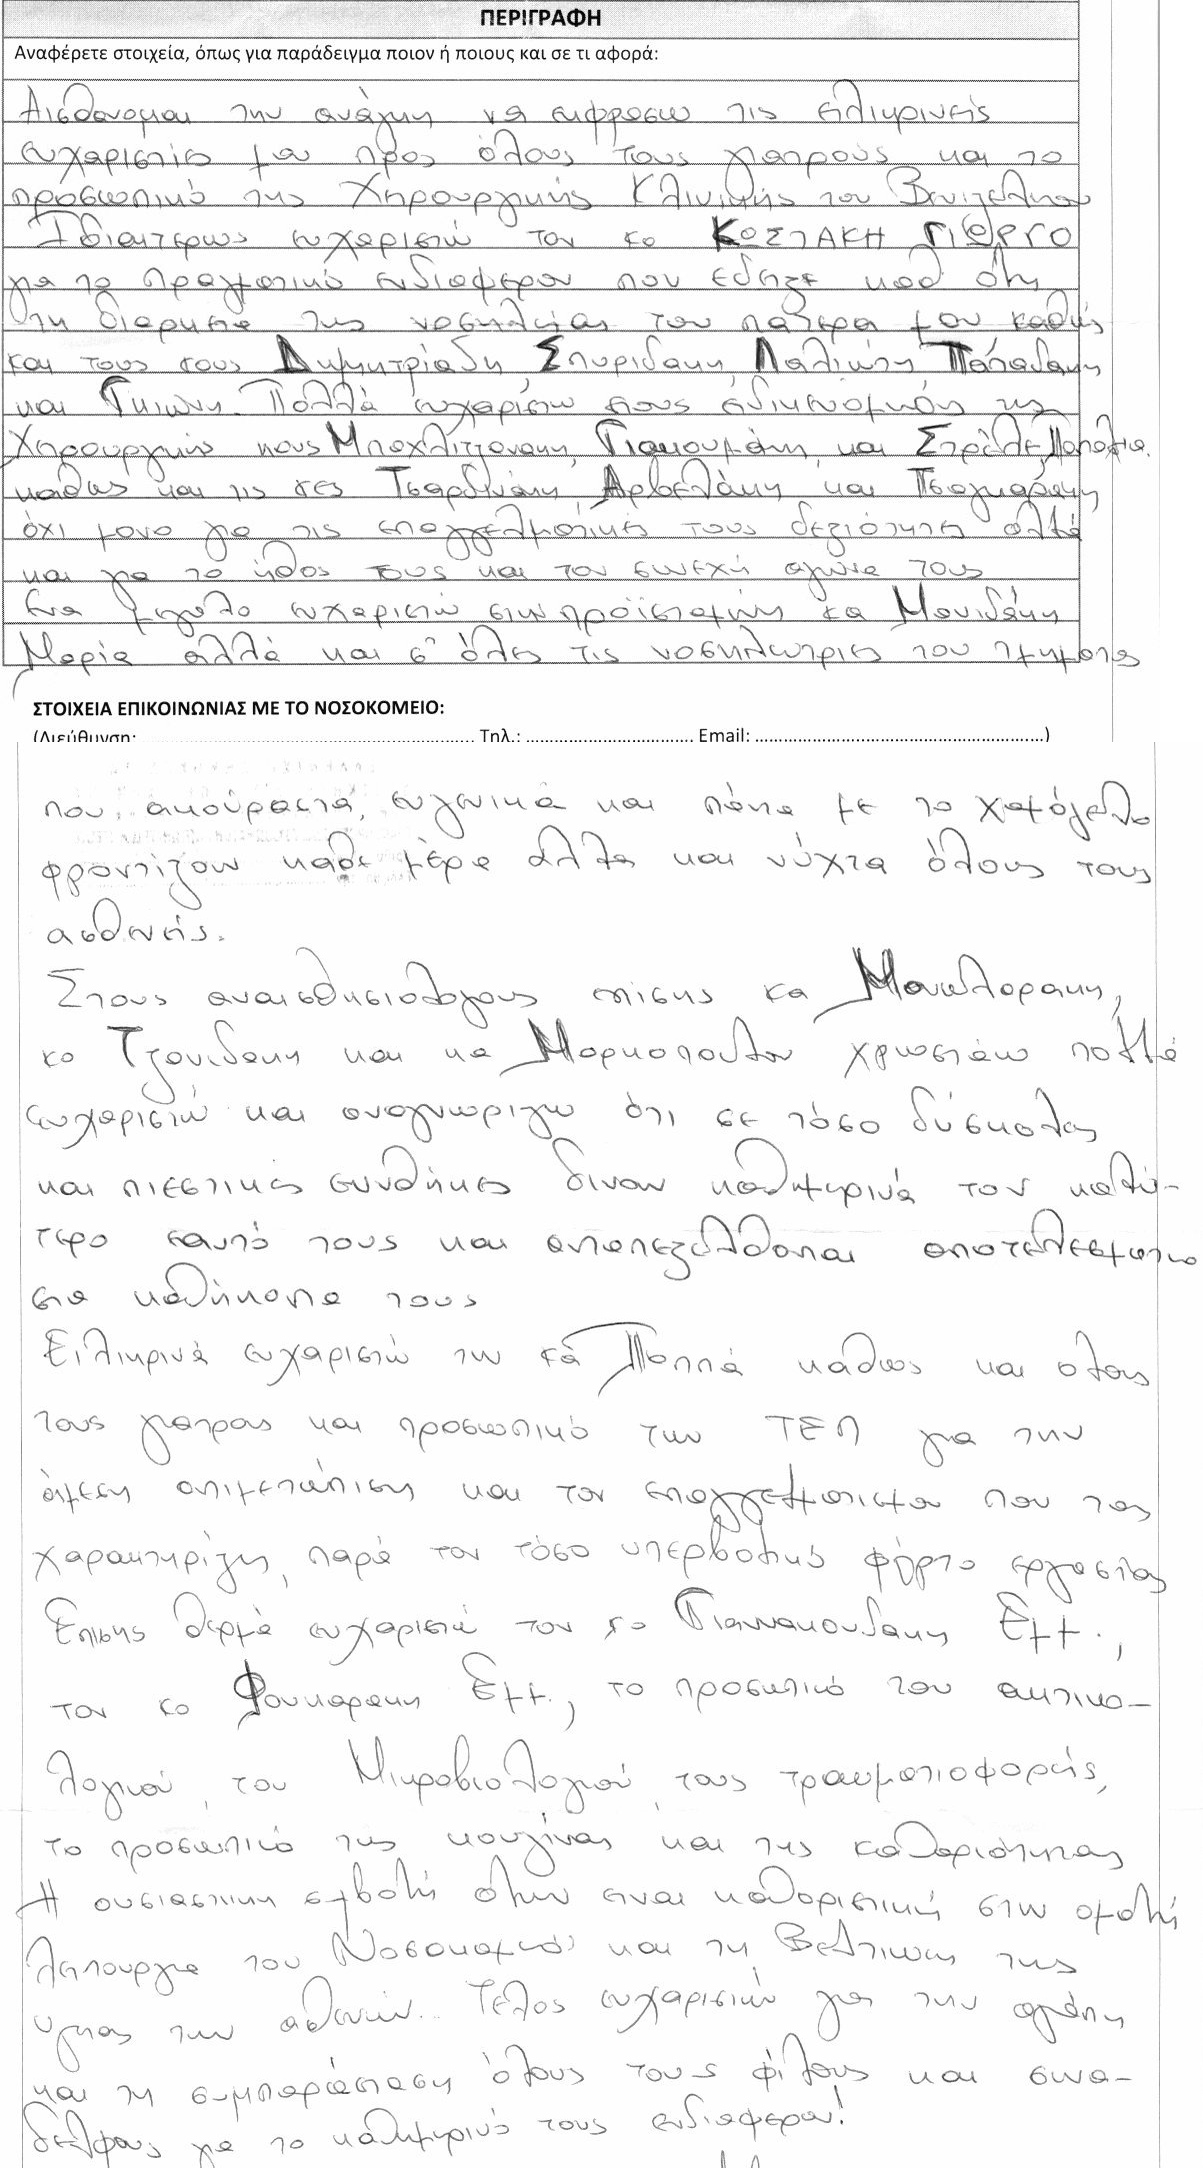 ΠΕΡΙΓΡΑΦΗ
Αναφέρετε στοιχεία, όπως για παράδειγμα ποιον ή ποιους και σε τι αφορά:
Αισθάνομαι την ανάγκη να εκφράσω τις ειλικρινείς
ευχαριστίες μου προς όλους τους γιατρούς και το
προσωπικό της Χειρουργικής Κλινικής του Βενιζελείου
Ιδιαιτέρως ευχαριστώ τον κο ΚΩΣΤΑΚΗ ΓΙΩΡΓΟ
για το πραγματικό ενδιαφέρον που έδειξε καθ' όλη
τη διάρκεια της νοσηλείας του πατέρα μου καθώς
και τους κους Δημητριάδη, Σπυριδάκη, Παλιώτη, Παπαδάκη
και Γκιώνη. Πολλά ευχαριστώ στους ειδικευομένους της
Χειρουργικής κους Μπαχλιτζανάκη, Γιακουμάκη, και Στρέλε,
καθώς και τις κες Τσαρδινάκη, Αρβελάκη και Τσαγκαράκη
όχι μονο για τις επαγγελματικές τους δεξιότητες αλλά
και για το ήθος τους και τον συνεχή αγώνα τους
Ένα μεγάλο ευχαριστώ στην προϊσταμένη κα Μανιδάκη
Μαρία αλλά και σ' όλες τις νοσηλεύτριες του τμήματος
ΣΤΟΙΧΕΙΑ ΕΠΙΚΟΙΝΩΝΙΑΣ ΜΕ ΤΟ ΝΟΣΟΚΟΜΕΙΟ:
(Διεύθυνση: ............ Τηλ.: ............ Email: ............)
που ακούραστα, ευγενικά και πάντα με το χαμόγελο
φροντίζουν κάθε μέρα αλλά και νύχτα όλους τους
ασθενείς.
Στους αναισθησιολόγους επίσης κα Μανωλαράκη,
κο Τζανιδάκη και κα Μαρκοπούλου χρωστάω πολλά
ευχαριστώ και αναγνωρίζω ότι σε τόσο δύσκολες
και πιεστικές συνθήκες δίνουν καθημερινά τον καλύ-
τερο εαυτό τους και ανταπεξέλθονται αποτελεσματικά
στα καθήκοντα τους
Ειλικρινά ευχαριστώ την κα Παππά καθώς και όλους
τους γιατρους και προσωπικό των ΤΕΠ για την
άμεση αντιμετώπιση και τον επαγγελματισμό που τους
χαρακτηρίζει, παρά τον τόσο υπερβολικό φόρτο εργασίας
Επίσης θερμά ευχαριστώ τον κο Γιαννακουδάκη Εμμ.,
τον κο Φουκαράκη Εμμ., το προσωπικό του ακτινο-
λογικού, του Μικροβιολογικού, τους τραυματιοφορείς,
το προσωπικό της κουζίνας και της καθαριότητας
Η ουσιαστική συμβολή όλων είναι καθοριστική στην ομαλή
λειτουργία του Νοσοκομείου και τη βελτίωση της
υγείας των ασθενών. Τέλος ευχαριστώ για την αγάπη
και τη συμπαράσταση όλους τους φίλους και συνα-
δέλφους για το καθημερινό τους ενδιαφέρον!